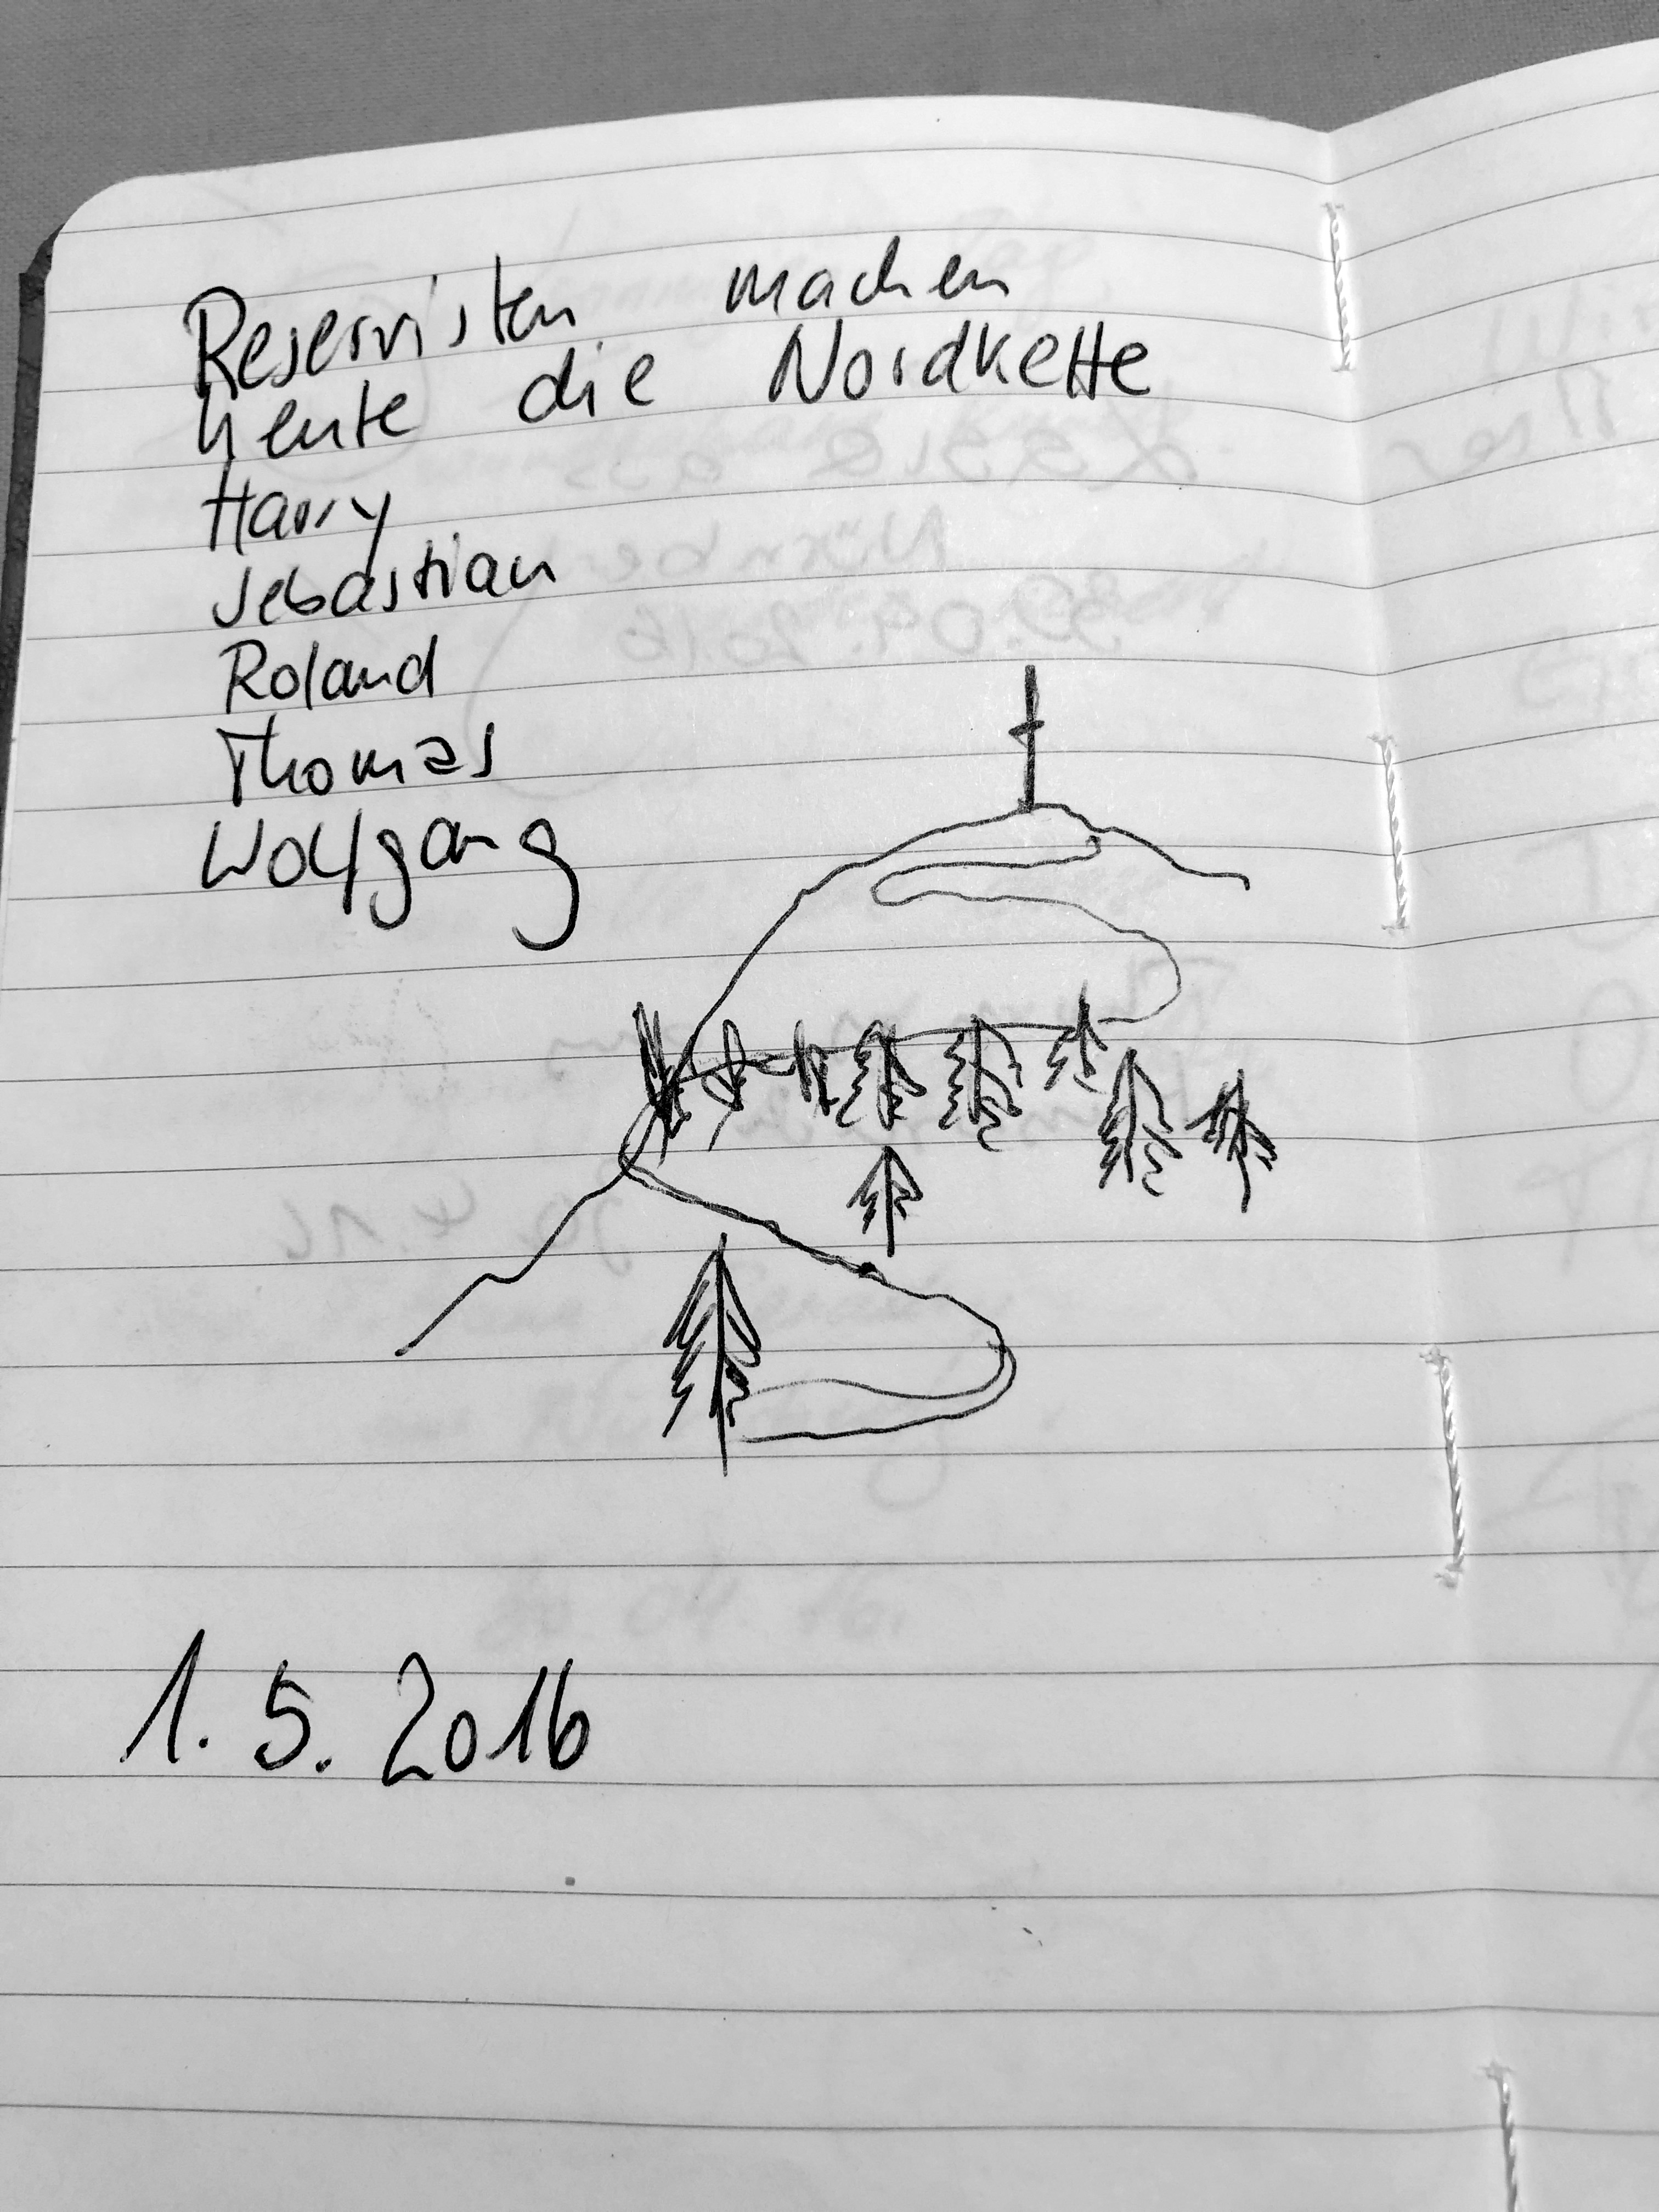 Reservisten machen
heute die Nordkette
Harry
Sebastian
Roland
Thomas
Wolfgang
1. 5. 2016